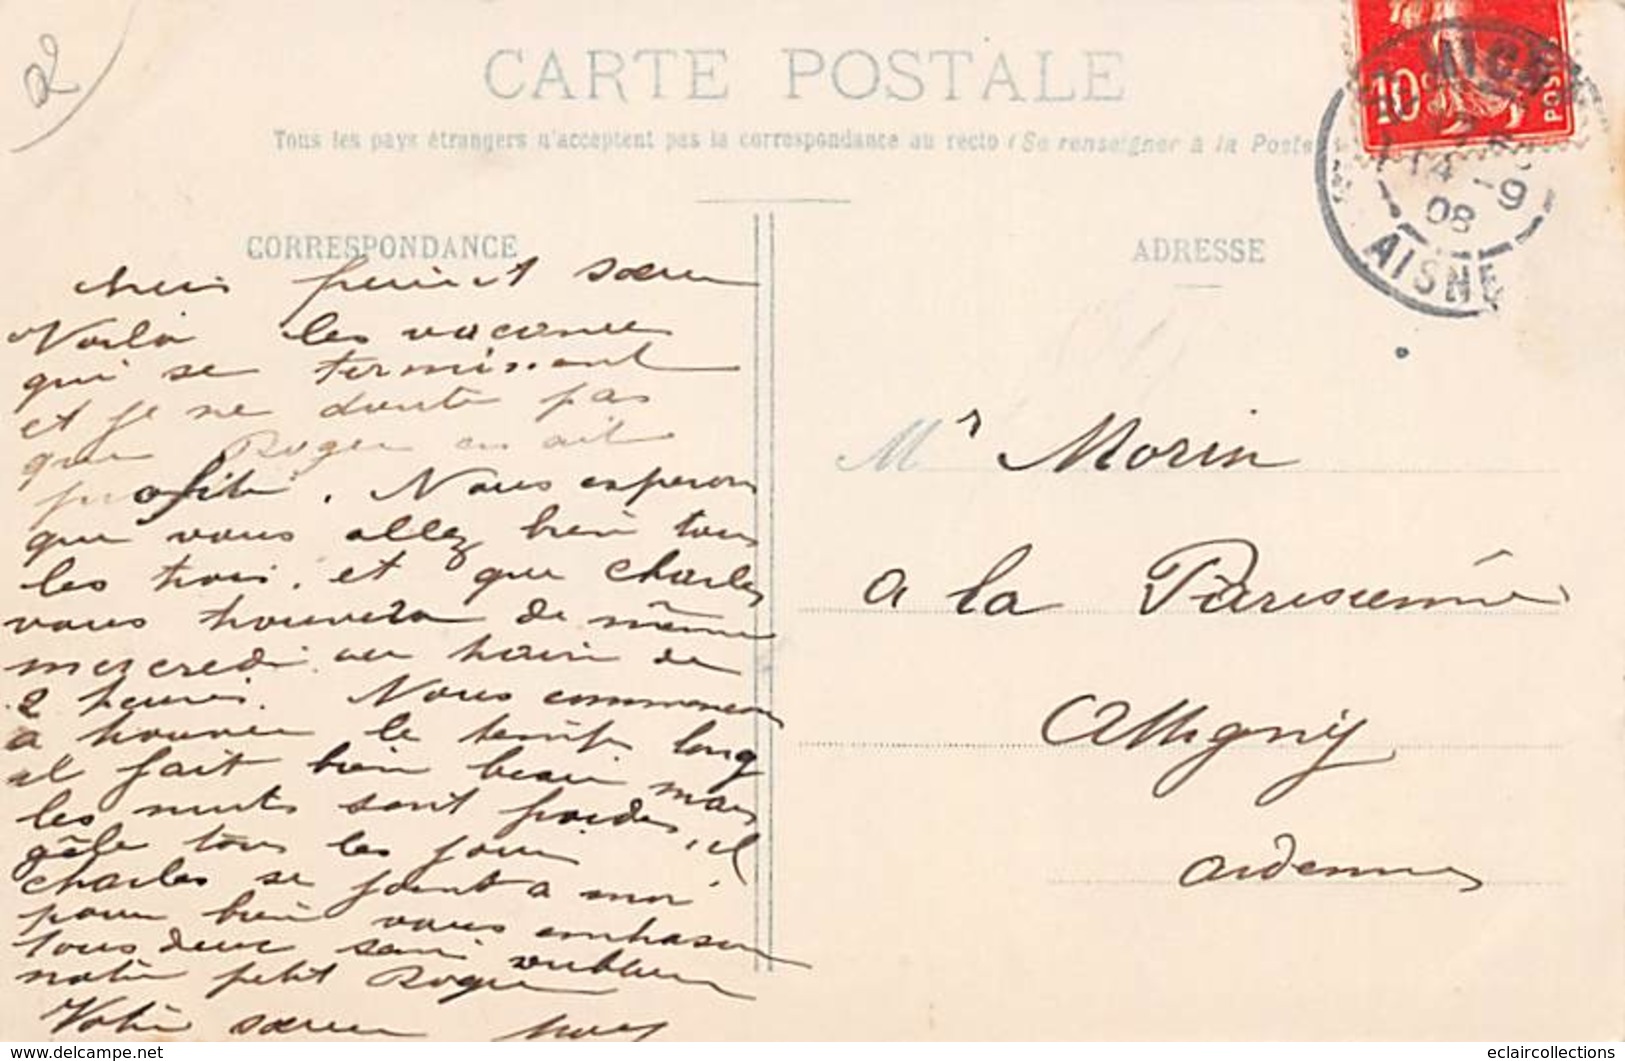 CARTE POSTALE
Tous les pays étrangers n'acceptent pas la correspondance au recto (Se renseigner à la Poste)
CORRESPONDANCE
ADRESSE
10c
POSTES
14 -9
08
AISNE
2
frère et sœur
Voilà les vacances
qui se terminent
et je ne doute pas
que Roger en ait
profité. Nous esperons
que vous allez bien tous
les trois, et que Charles
vous trouvera de même
mercredi au train de
2 heures. Nous commencons
a trouver le temps long
il fait bien beau mais
les nuits sont froides, il
gêle tous les jours
Charles se joint a moi
pour bien vous embrasser
tous deux sans oublier
notre petit Roger
Votre sœur
Mr Morin
a la Parisienne
Attigny
Ardennes
eclaircollections
https://www.delcampe.net